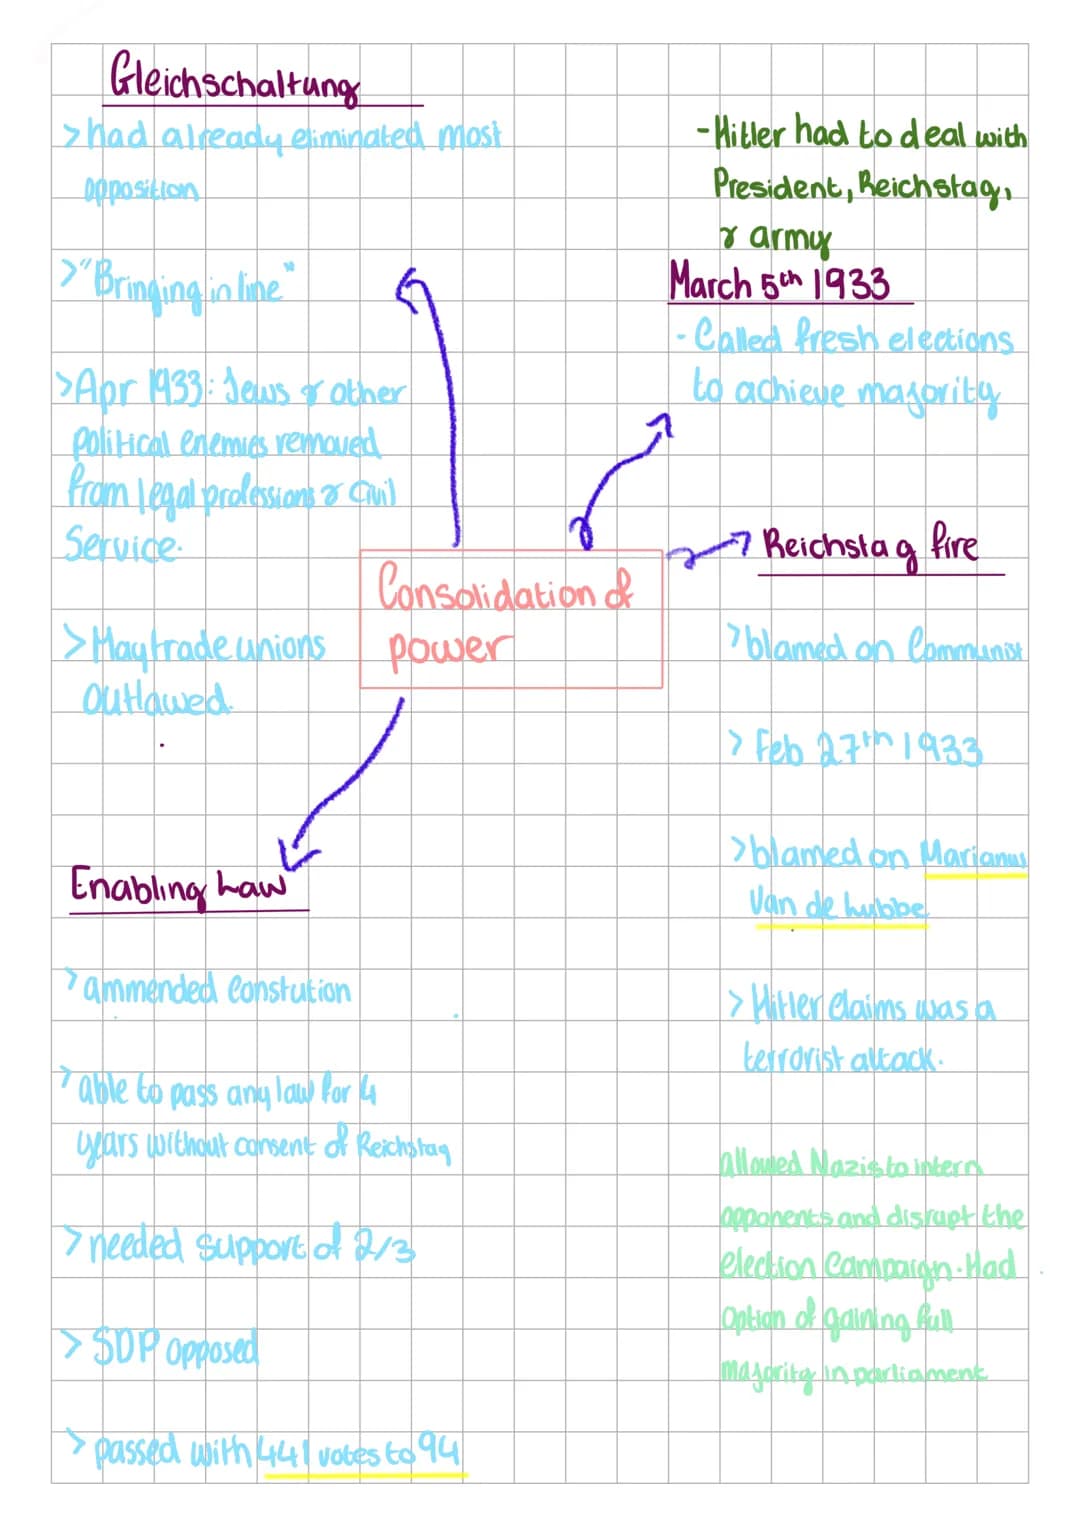 Gleichschaltung
>had already eliminated most
opposition
>"Bringing in line"
>Apr 1933: Jews & other
political enemies removed
from legal professions & Civil
Service.
>May trade unions
outlawed.
-Hitler had to deal with
President, Reichstag,
& army
March 5th 1933
- Called fresh elections
to achieve majority
Consolidation of
power
Reichstag fire
>blamed on Communist
> Feb 27th 1933
>blamed on Marianus
Van de Lubbe
> Hitler claims was a
terrorist attack.
allowed Nazis to intern
opponents and disrupt the
election campaign. Had
option of gaining full
majority in parliament
Enabling Law
> ammended constution
> able to pass any law for 4
years without consent of Reichstag
> needed support of 2/3
> SDP opposed
> passed with 441 votes to 94